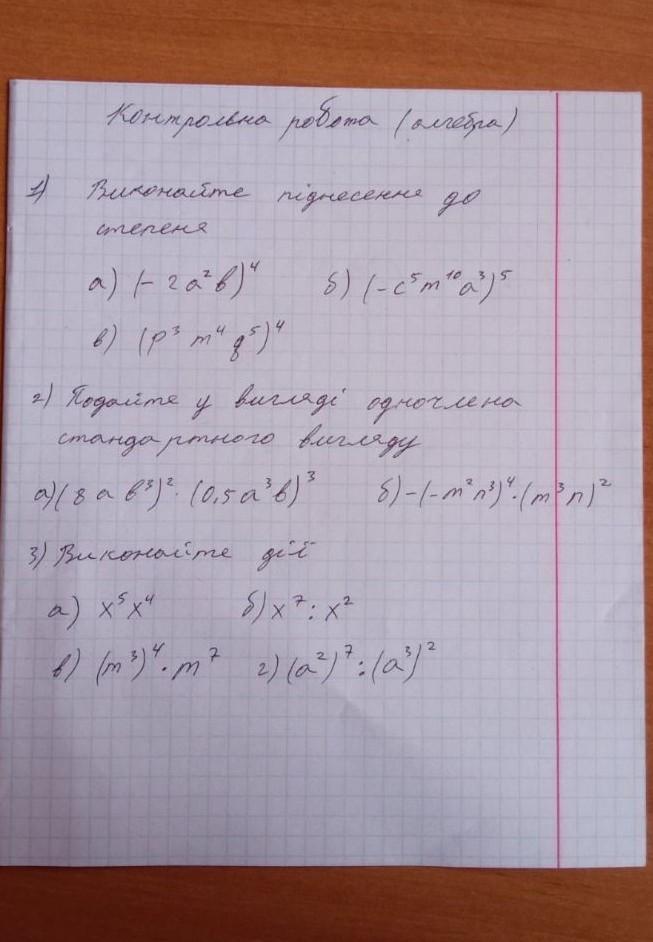 Контрольна робота (алгебра)
1) Виконайте піднесення до
степеня
а) (-2a²b)⁴ б) (-c⁵m¹⁰a³)⁵
в) (p³ m⁴ q⁵)⁴
2) Подайте у вигляді одночлена
стандартного вигляду
а) (8 a b³)² · (0,5a³b)³ б) -(-m²n³)⁴·(m³n)²
3) Виконайте дії
а) x⁵x⁴ б) x⁷ : x²
в) (m³)⁴ · m⁷ г) (a²)⁷ : (a³)²